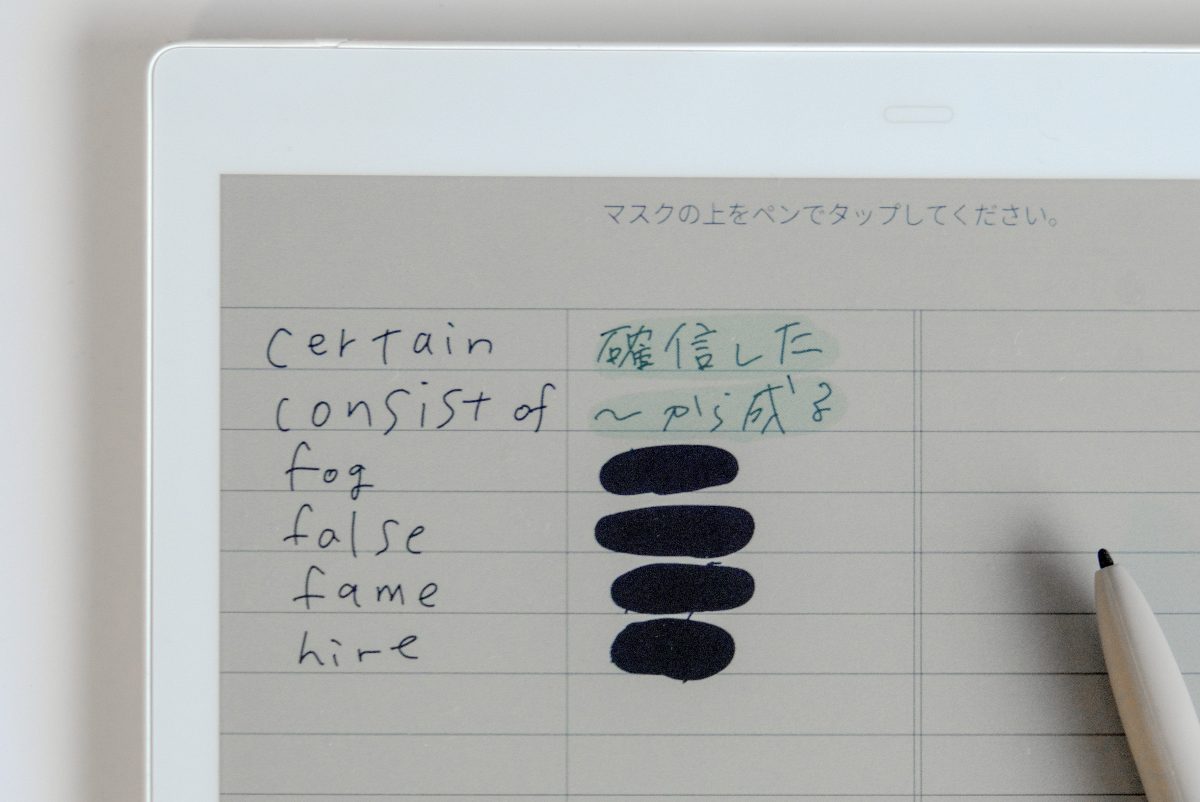 マスクの上をペンでタップしてください。
certain 確信した
consist of 〜から成る
fog
false
fame
hire